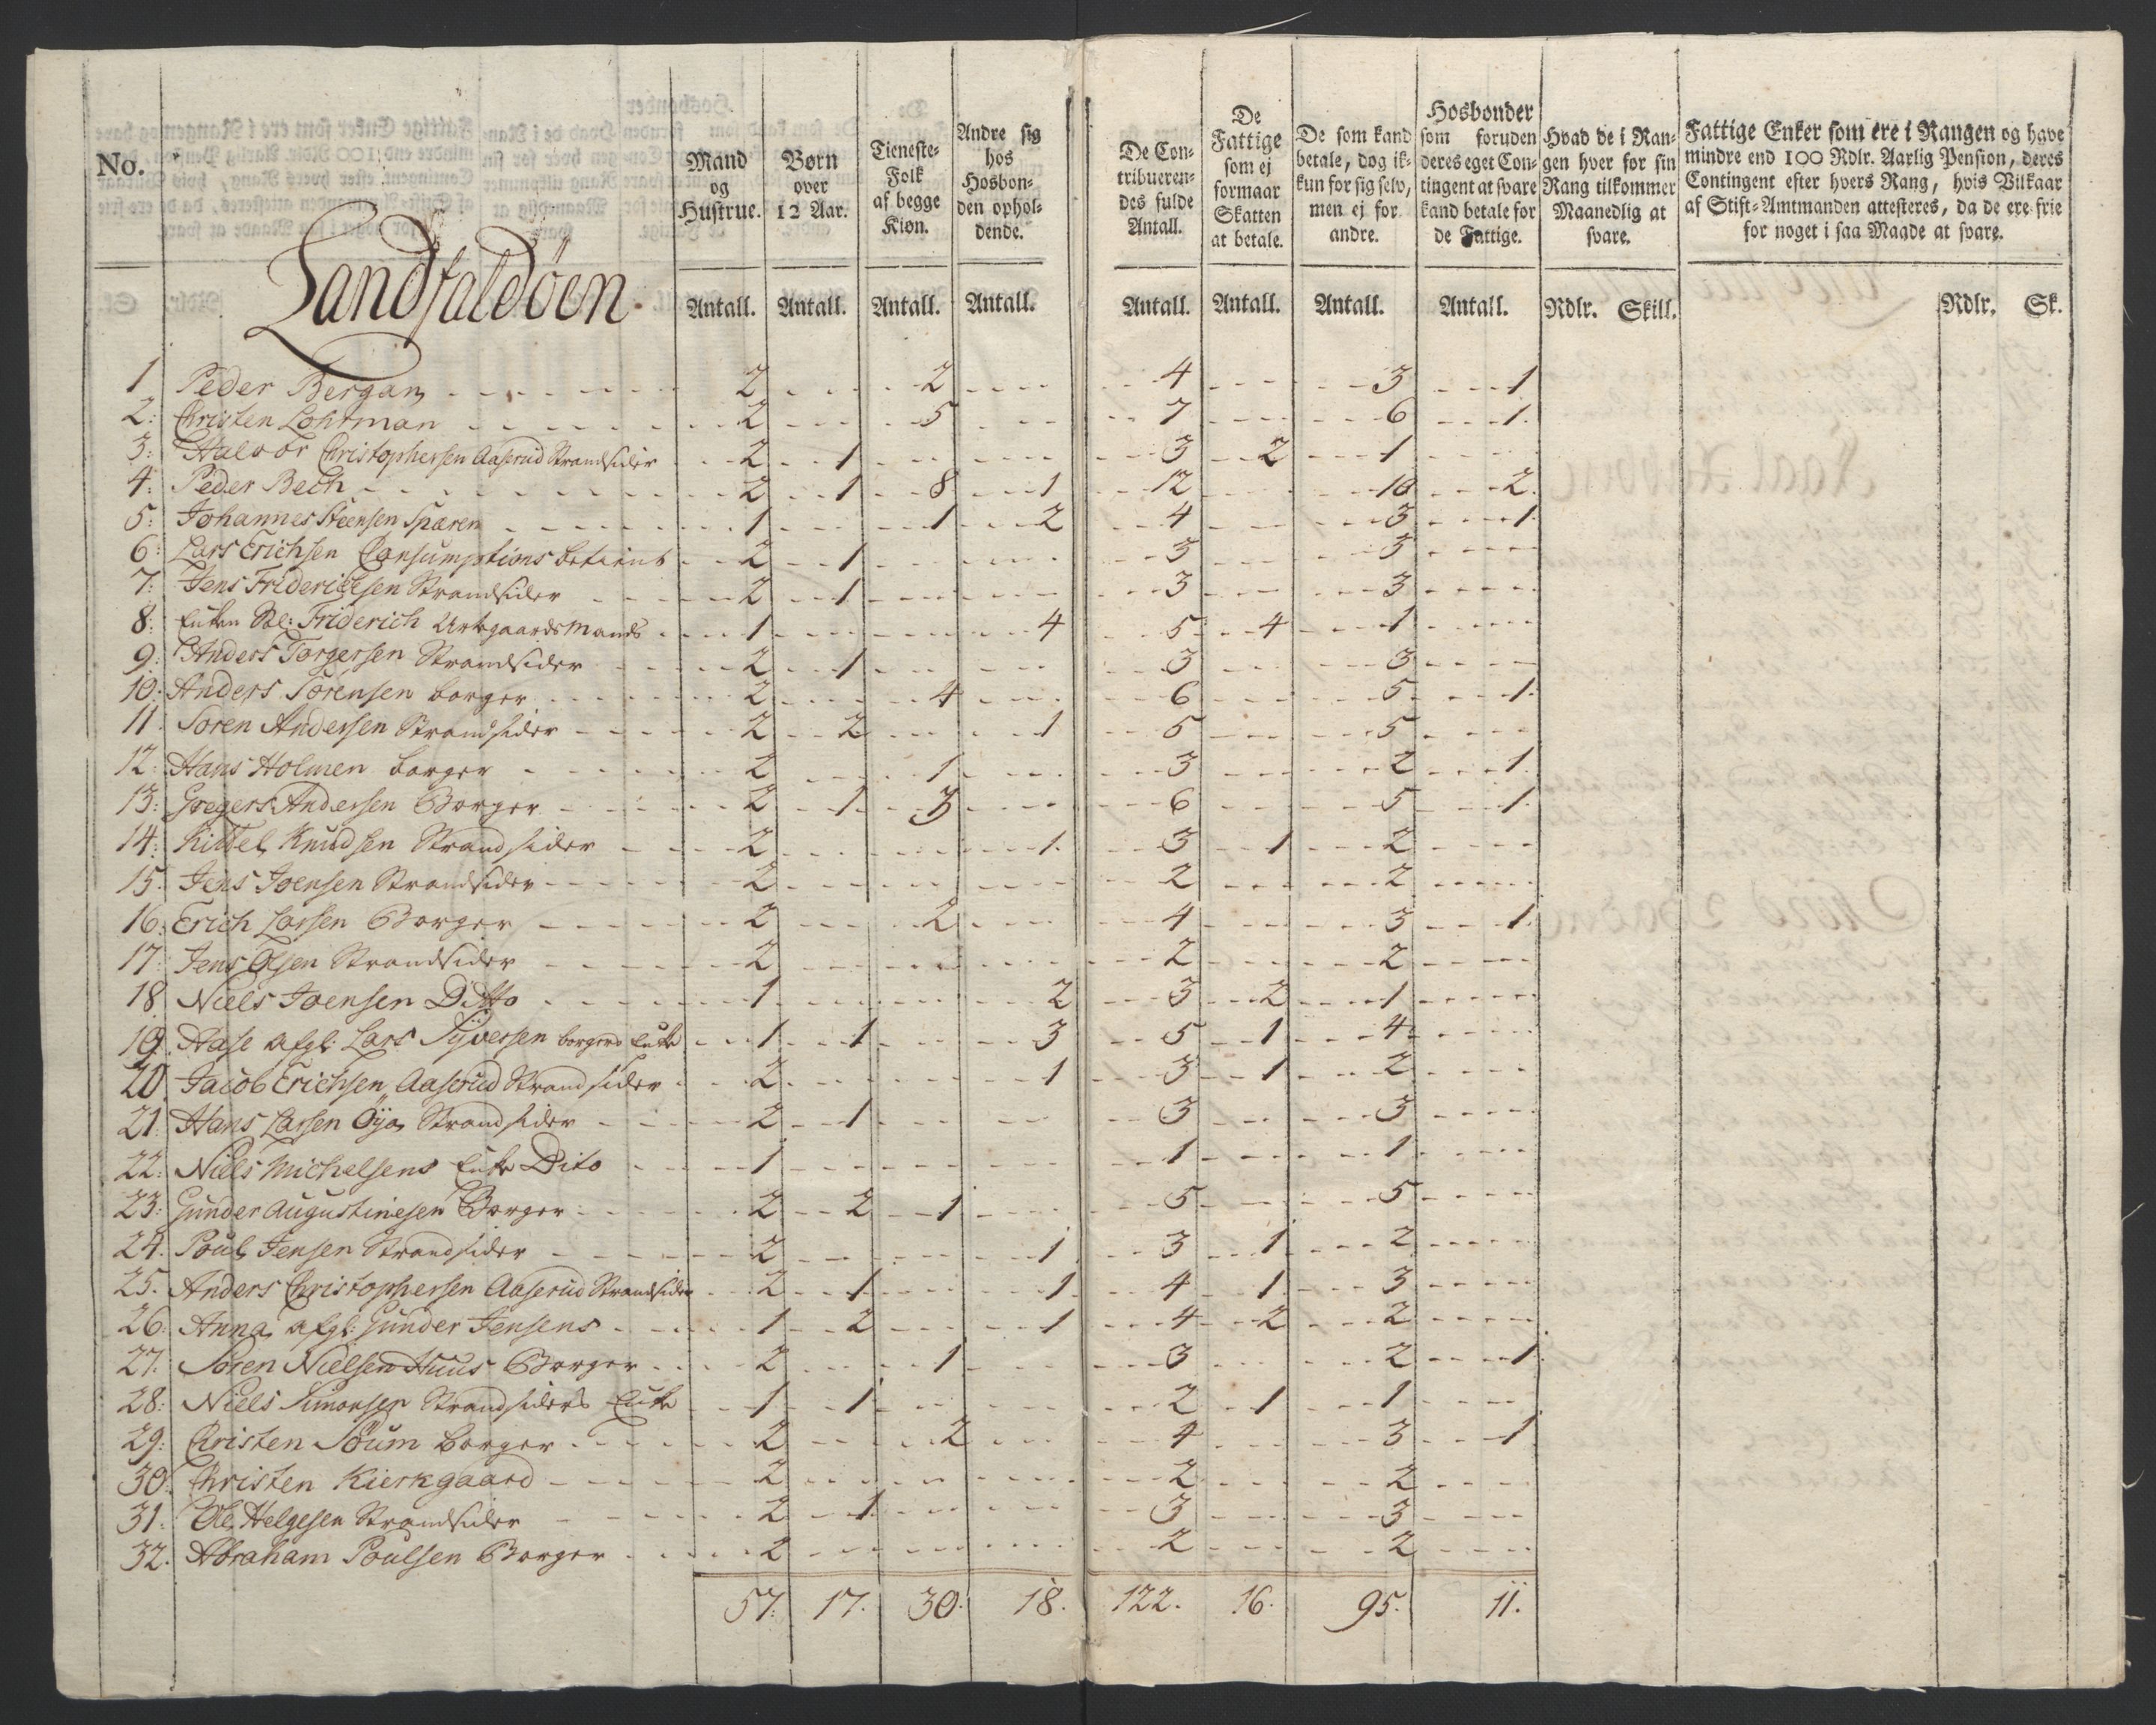 No.
Mand og Hustrue.
Børn over 12 Aar.
Tieneste-Folk af begge Kiøn.
Andre sig hos Hosbon-den ophol-dende.
De Con-tribueren-des fulde Antall.
De Fattige som ej formaar Skatten at betale.
De som kand betale, dog ik-kun for sig selv, men ej for andre.
Hosbonder som foruden deres eget Con-tingent at svare kand betale for de Fattige.
Hvad de i Ran-gen hver for sin Rang tilkommer Maanedlig at svare.
Fattige Enker som ere i Rangen og have mindre end 100 Rdlr. Aarlig Pension, deres Contingent efter hvers Rang, hvis Vilkaar af Stift-Amtmanden attesteres, da de ere frie for noget i saa Maade at svare.
Landfaldøen.
Antall. Antall. Antall. Antall. Antall. Antall. Antall. Antall. Rdlr. Skill. Rdlr. Sk.
1 Peder Bergan 2 2 4 3 1
2: Christen Lohrman 2 5 7 6 1.
3: Halvor Christophersen Aaserud Strandsider 2 1 3 2 1
4: Peder Bech 2 1 8 1 12 10 2.
5: Johannes Steensen Sparen 1 1 2 4 3 1.
6: Lars Erichsen Consumptions betient 2 1 3 3
7: Jens Friderichsen Strandsider 2 1 3 3
8: Enken Sl: Friderich Urtegaards Mands 1 4 5 4 1
9: Anders Torgersen Strandsider 2 1 3 3
10: Anders Sørensen borger 2 4 6 5 1.
11. Soren Andersen Strandsider 2 2 1 5 5
12: Hans Holmen borger 2 1 3 2 1.
13: Gregers Andersen Borger 2 1 3 6 5 1.
14: Kittel Knudsen Strandsider 2 1. 3 1 2
15. Jens Joensen Strandsider 2 2 2
16: Erich Larsen Borger 2 2 4 3 1.
17: Jens Olsen Strandsider 2 2 2
18 Niels Joensen Ditto 1 2 3 2 1
19. Aase afgl: Lars Syversen borgers Enke 1 1 3 5 1 4
20. Jacob Erichsen Aaserud Strandsider 2 1 3 1 2
21: Hans Larsen Øya Strandsider 2 1 3 3
22: Niels Michelsens Enke Dito 1 1 1
23: Gunder Augustinesen Borger 2 2 1 5 5
24. Poul Jensen Strandsider 2 1 3 1 2
25. Anders Christophersen Aaserud Strandsider 2 1 1 4 1 3
26: Anna afgl: Gunder Jensens 1 2 1 4 2 2
27: Søren Nielsen Huus Borger 2 1 3 2 1.
28: Niels Simonsen Strandsiders Enke 1 1 2 1 1
29: Christen Soum borger 2 2 4 3 1
30: Christen Kierkgaard 2 2 2
31: Ole Helgesen Strandsider 2 1 3 3
32. Abraham Poulsen Borger 2 2 2
57. 17. 30. 18. 122. 16. 95. 11.